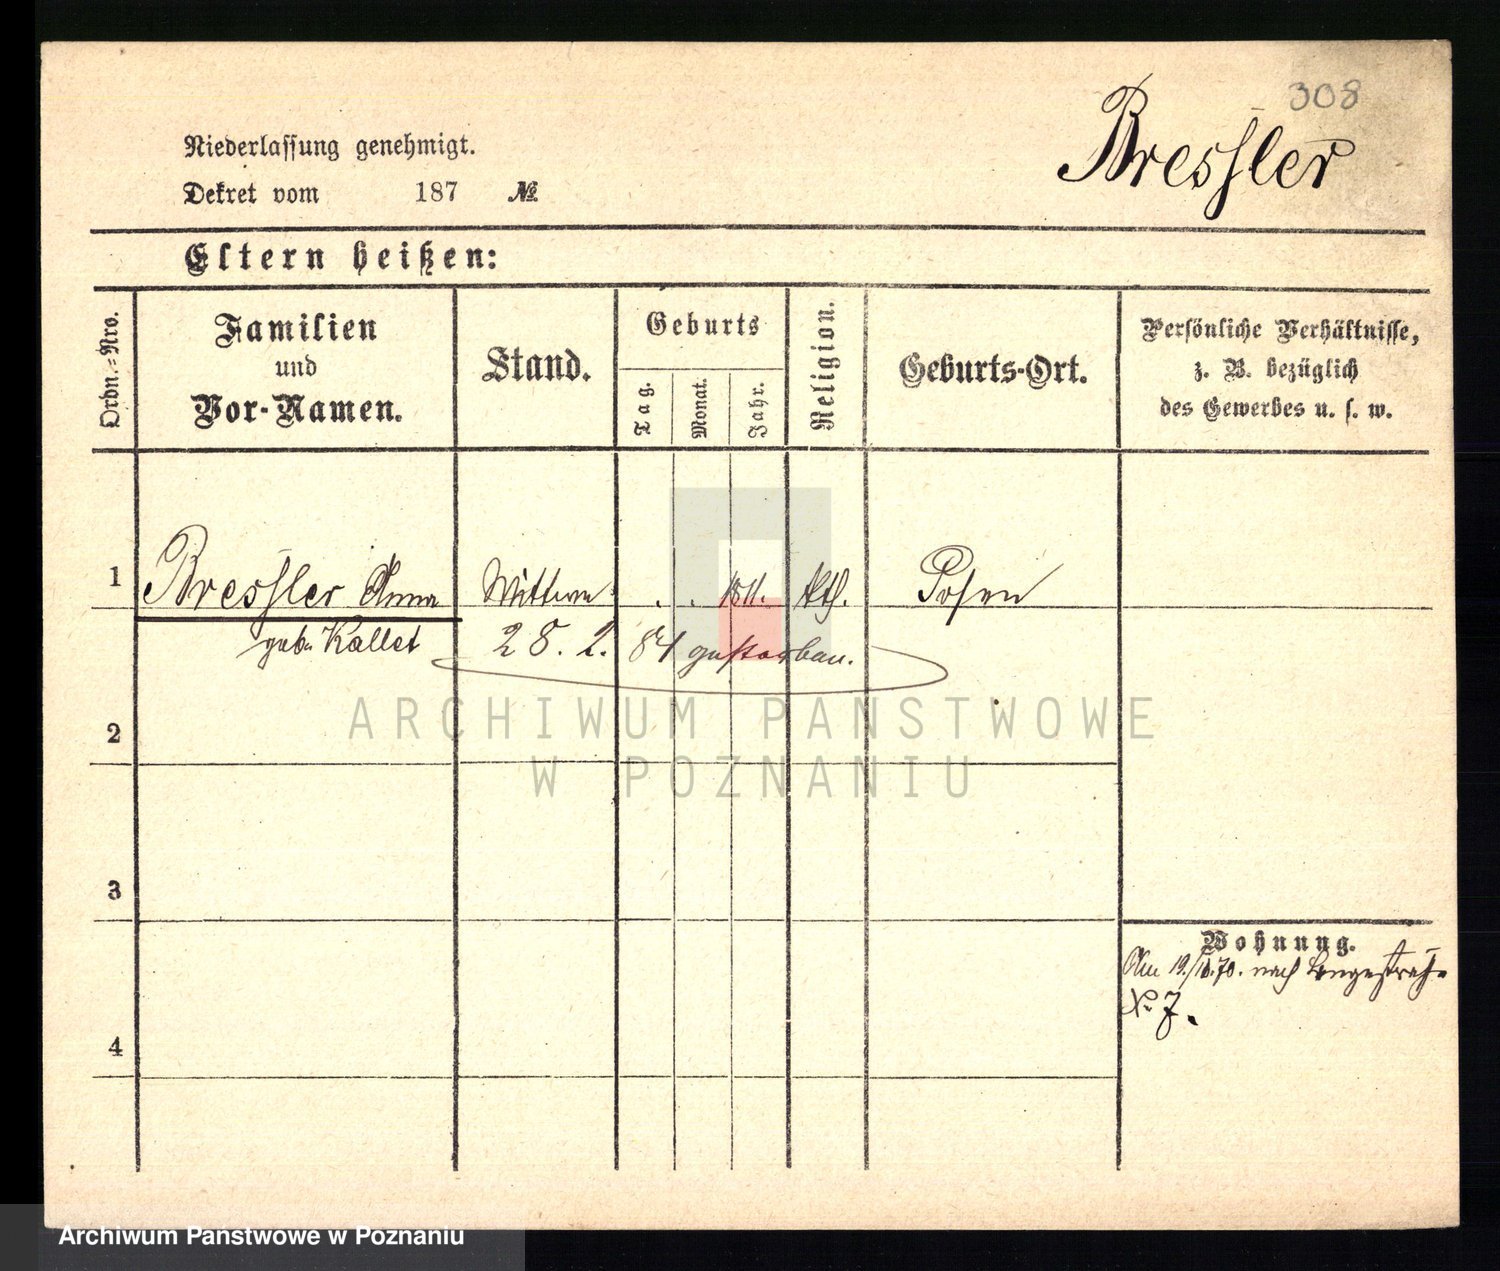 308
Bressler
Niederlassung genehmigt.
Dekret vom 187 №
Eltern heißen:
Ordn.=Nro.
Familien
und
Vor-Namen.
Stand.
Geburts
Tag.
Monat.
Jahr.
Religion.
Geburts-Ort.
Persönliche Verhältnisse,
z. B. bezüglich
des Gewerbes u. s. w.
1 Bressler Anna Wittwe . . 1811. kth. Posen
geb. Kallet 28. 2. 81 gestorben.
ARCHIWUM PAŃSTWOWE
W POZNANIU
2
3
Wohnung.
Am 19./10.70. nach Langestraße
№ 7.
4
Archiwum Państwowe w Poznaniu